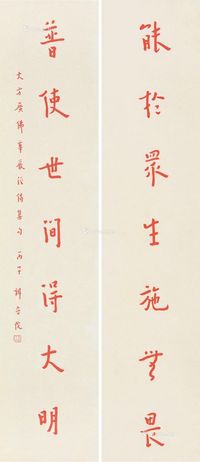 能於眾生施無畏
普使世間得大明
大方廣佛華嚴經偈集句 丙子 稱音院